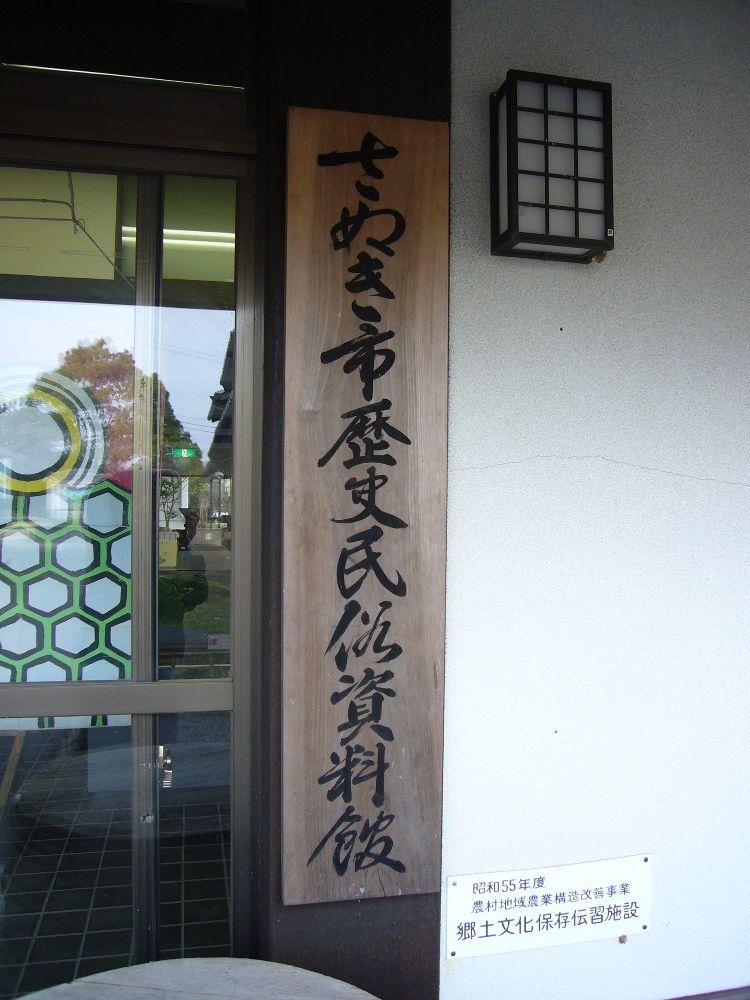 さぬき市歴史民俗資料館
昭和55年度
農村地域農業構造改善事業
郷土文化保存伝習施設